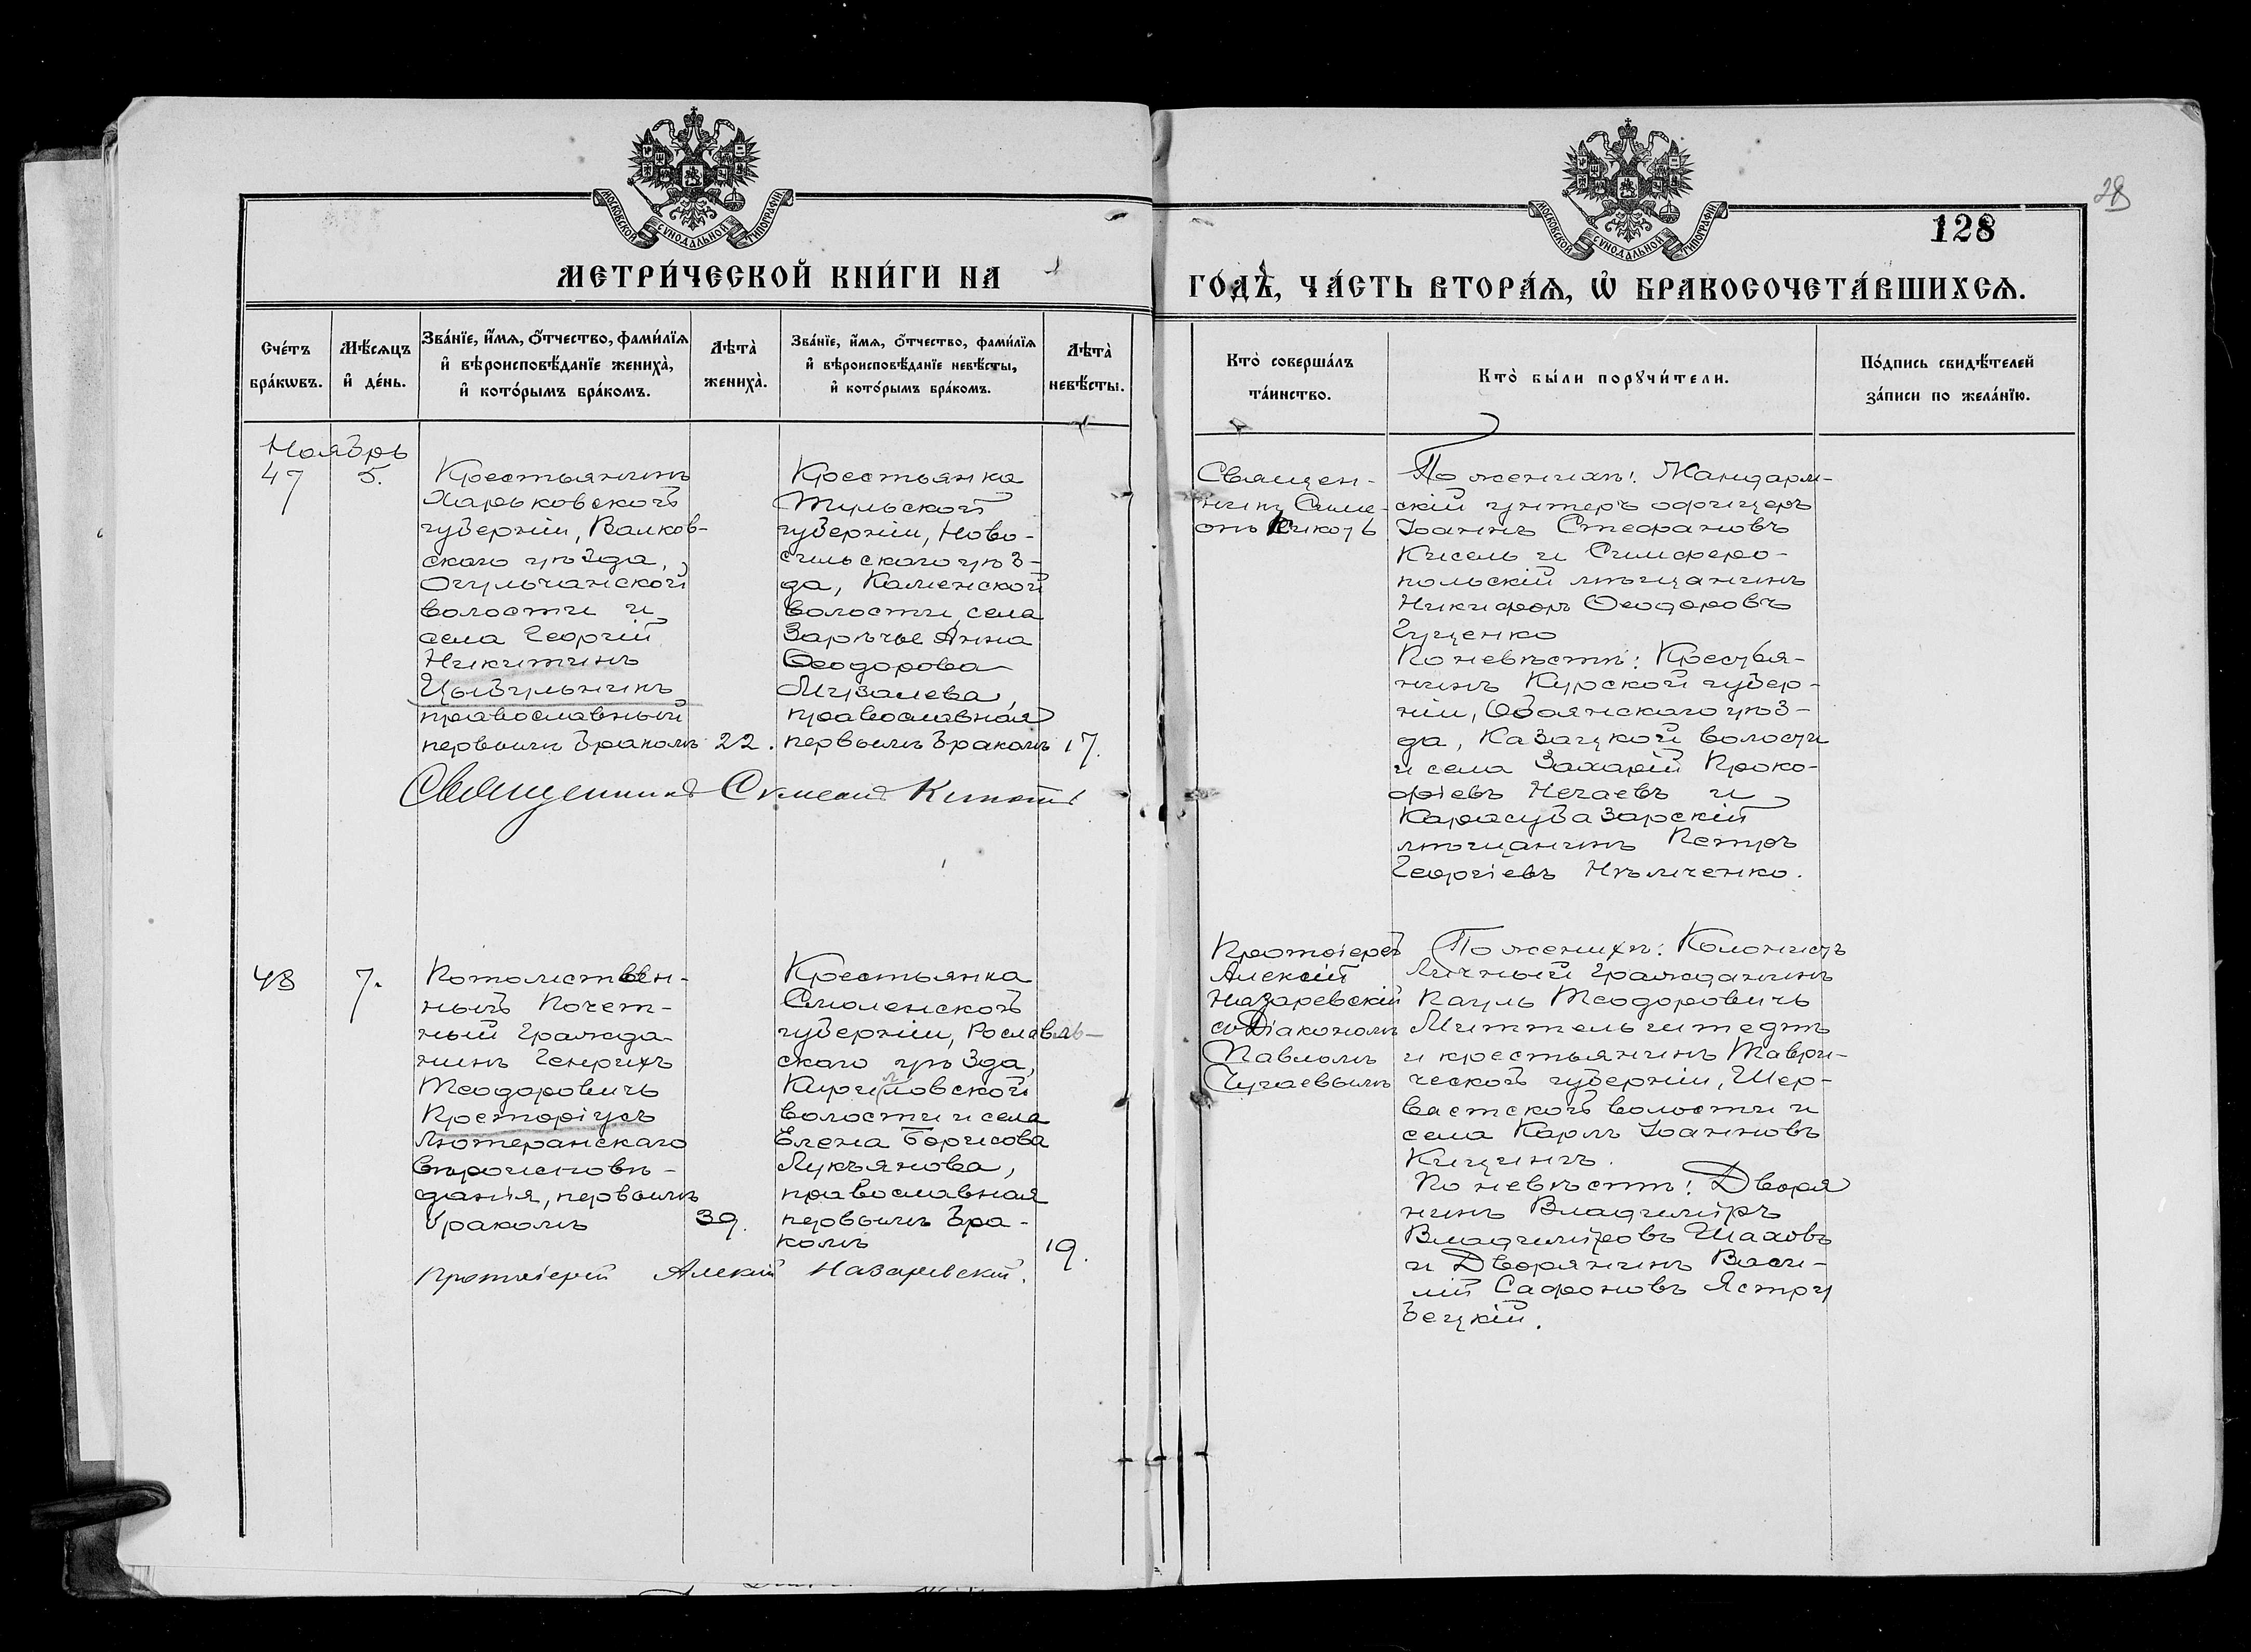 28
128
МОСКОВСКОЙ СѴНОДАЛЬНОЙ ТИПОГРАФІИ
МОСКОВСКОЙ СѴНОДАЛЬНОЙ ТИПОГРАФІИ
МЕТРИ́ЧЕСКОЙ КНИ́ГИ НА
ГО́ДЪ, ЧА́СТЬ ВТОРА́Ѧ, Ѡ҆ БРАКОСОЧЕТА́ВШИХСѦ.
Сче́тъ
бра́кѡвъ.
Мѣ́сѧцъ
и҆ де́нь.
Зва́нїе, и҆́мѧ, ѻ҆́тчество, фами́лїѧ
и҆ вѣроисповѣ́данїе жениха̀,
и҆ кото́рымъ бра́комъ.
Лѣта̀
жениха̀.
Зва́нїе, и҆́мѧ, ѻ҆́тчество, фами́лїѧ
и҆ вѣроисповѣ́данїе невѣ́сты,
и҆ кото́рымъ бра́комъ.
Лѣта̀
невѣ́сты.
Кто̀ соверша́лъ
та́инство.
Кто̀ бы́ли порꙋчи́тели.
По́дпись свидѣ́телей
за́писи по жела́нїю.
Ноябрь
47
5.
Крестьянинъ
Харьковской
губерніи, Валков-
скаго уѣзда,
Огульчанской
волости и
села Георгій
Никитинъ
Цыбульникъ
православный
первымъ бракомъ
22.
Крестьянка
Тульской
губерніи, Ново-
сильскаго уѣз-
да, Каменской
волости, села
Зарѣчье Анна
Ѳеодорова
Музалева,
православная
первымъ бракомъ
17.
Священникъ Симеонъ
Священ-
никъ Симе-
онъ
По женихѣ: Жандарм-
скій унтеръ офицеръ
Іоаннъ Стефановъ
Кисель и Симферо-
польскій мѣщанинъ
Никифоръ Ѳеодоровъ
Гуценко
По невѣстѣ: Крестья-
нинъ Курской губер-
ніи, Обоянскаго уѣз-
да, Казацкой волости
и села Захарій Проко-
фіевъ Нечаевъ и
Карасубазарскій
мѣщанинъ Петръ
Георгіевъ Нѣмченко.
48
7.
Потомствен-
ный Почет-
ный Гражда
нинъ Генрихъ
Теодоровичъ
Преторіусъ
Лютеранскаго
вѣроисповѣ-
данія, первымъ
бракомъ
39.
Крестьянка
Смоленской
губерніи, Рославль-
скаго уѣзда,
волости и села
Елена Борисова
Лукъянова,
православная
первымъ бра-
комъ
19.
Протоіерей Алексій Назаревскій.
Протоіерей
Алексій
Назаревскій
съ Діакономъ
Павломъ
Чугаевымъ
По женихѣ: Колонистъ
Личный Гражданинъ
Пауль Теодоровичъ
Миттельштедтъ
и крестьянинъ Таври-
ческой губерніи, Шер-
ветской волости и
села Карлъ Іоанновъ
По невѣстѣ: Дворя
нинъ Владиміръ
Владиміровъ Шаховъ
и Дворянинъ Васи-
лій Сафоновъ Ястру
бецкій.